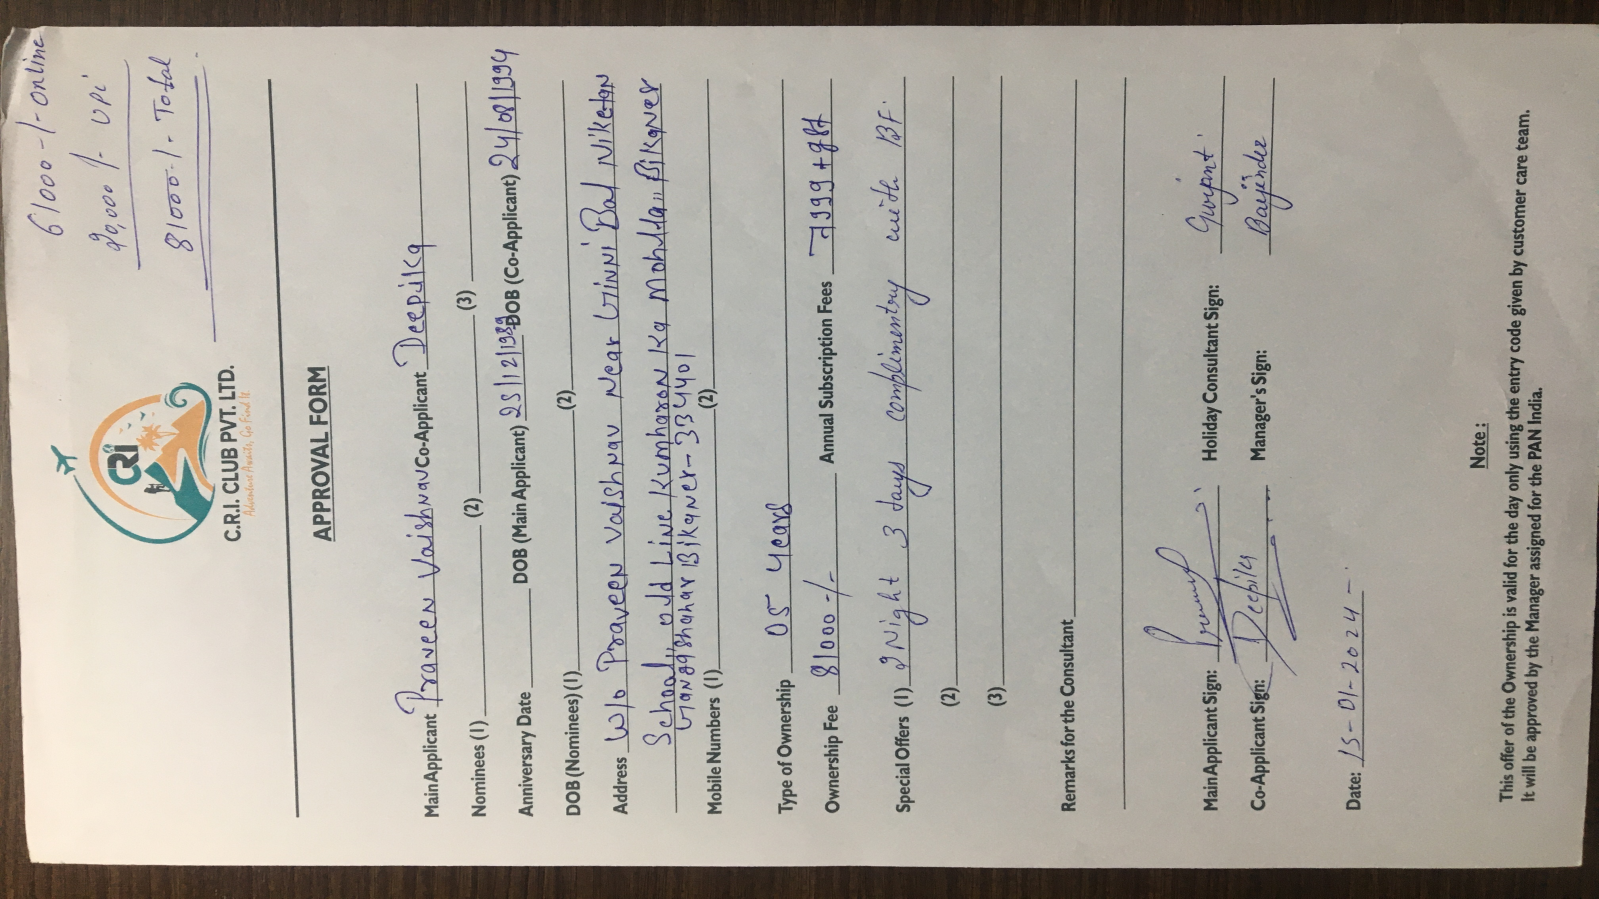 61000-/-online
20,000/- UPi
81000-/- Total
CRI
C.R.I. CLUB PVT. LTD.
Adventure Awaits, Go Find It
APPROVAL FORM
Main Applicant Praveen Vaishnav Co-Applicant Deepika
Nominees (1) (2) (3)
Anniversary Date DOB (Main Applicant) 25/12/1989 DOB (Co-Applicant) 24/08/1994
DOB (Nominees) (1) (2)
Address W/o Praveen Vaishnav Near Ginni Bal Niketan
School, old Line Kumharon Ka Mohlla, Bikaner
Gangashahar Bikaner-334401
Mobile Numbers (1) (2)
Type of Ownership 05 Years
Ownership Fee 81000-/- Annual Subscription Fees 7999+gst
Special Offers (1) 2 Night 3 days complimentry with BF.
(2)
(3)
Remarks for the Consultant
Main Applicant Sign: Holiday Consultant Sign:
Co-Applicant Sign: Deepika Manager's Sign:
Date: 15-01-2024-
Note :
This offer of the Ownership is valid for the day only using the entry code given by customer care team.
It will be approved by the Manager assigned for the PAN India.